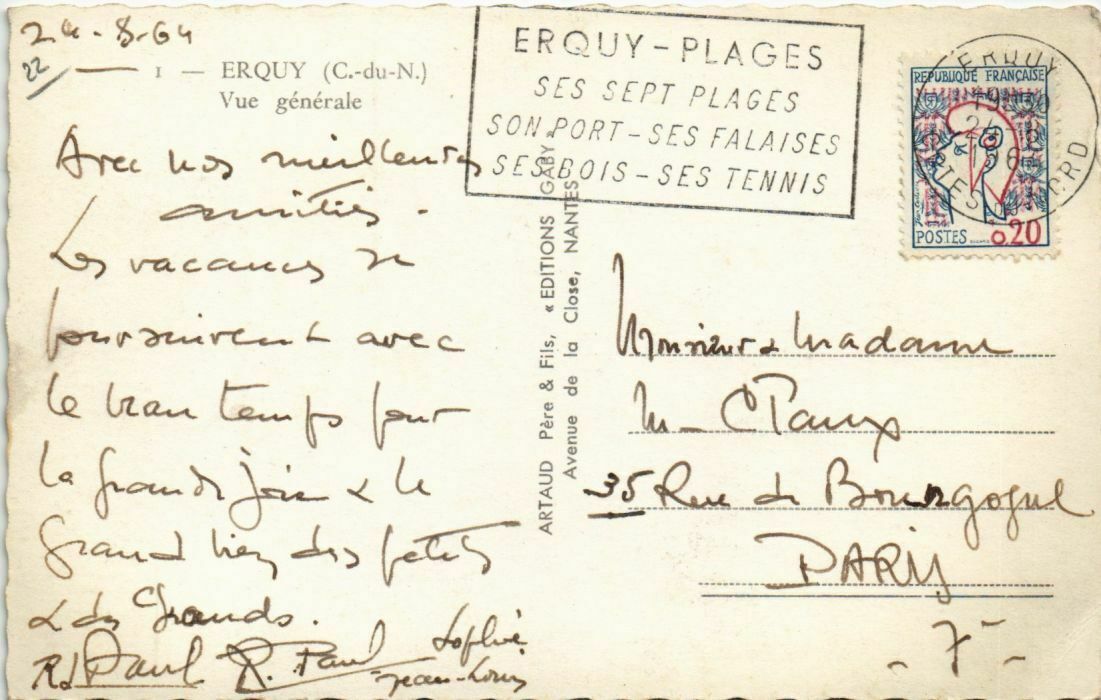 24-8-64
22
1 — ERQUY (C.-du-N.)
Vue générale
Avec nos meilleures
amitiés.
Les vacances se
poursuivent avec
le beau temps pour
la grande joie & le
grand bien des petits
& des Grands.
R. Paul R. Paul Sophie
Jean-Louis
ARTAUD Père & Fils, « EDITIONS GABY »
Avenue de la Close, NANTES
ERQUY – PLAGES
SES SEPT PLAGES
SON PORT – SES FALAISES
SES BOIS – SES TENNIS
REPUBLIQUE FRANÇAISE
POSTES 0.20
ERQUY
CÔTES DU NORD
Monsieur & Madame
M–
35 Rue de Bourgogne
PARIS
– 7 –